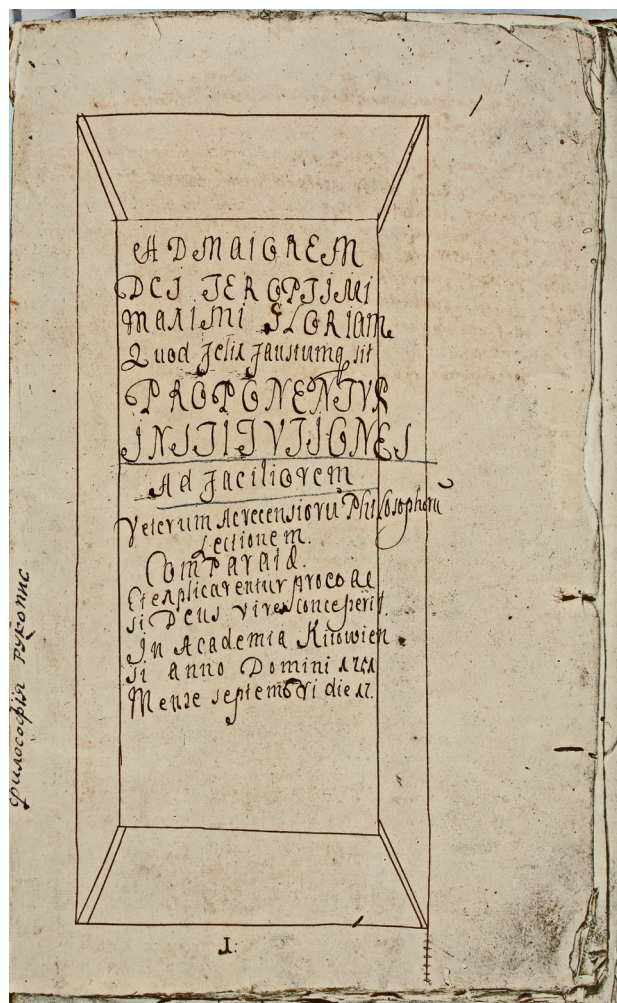 AD MAIOREM
DEI TER OPTIMI
MAXIMI GLORIAM
Quod felix faustumq sit
PROPONENTVR
INSTITVTIONES
Ad faciliorem
Veterum Ac recensiorũ Philosophorũ
Lectionem.
Comparatæ.
Et explicarentur pro
si Deus vires conceperit.
In Academia Kiiowien
si anno Domini
Mense septembri die 17.
I.
Философія рукопис